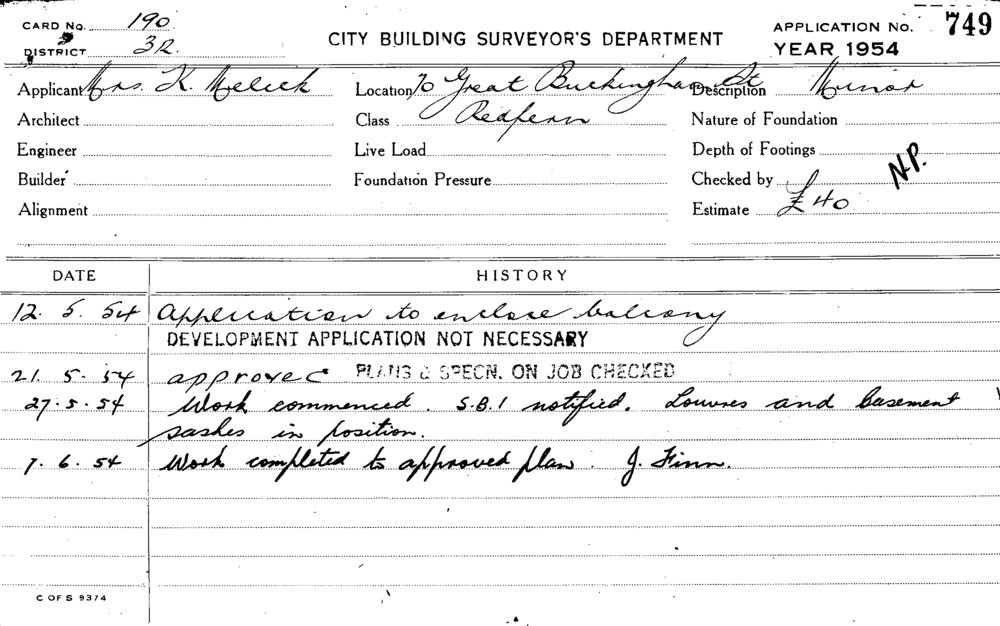 CARD No. 190
DISTRICT 32
CITY BUILDING SURVEYOR'S DEPARTMENT
APPLICATION No. 749
YEAR 1954
Applicant Mrs. K. Melick Location 70 Great Buckingham St Description Minor
Architect Class Redfern Nature of Foundation
Engineer Live Load Depth of Footings
Builder Foundation Pressure Checked by N.P.
Alignment Estimate £40
DATE HISTORY
12. 5. 54 Application to enclose balcony
DEVELOPMENT APPLICATION NOT NECESSARY
21. 5. 54 approved PLANS & SPECN. ON JOB CHECKED
27. 5. 54 Work commenced. S.B.I notified. Louvres and basement
sashes in position.
7. 6. 54 Work completed to approved plan. J. Finn.
C OF S 9374